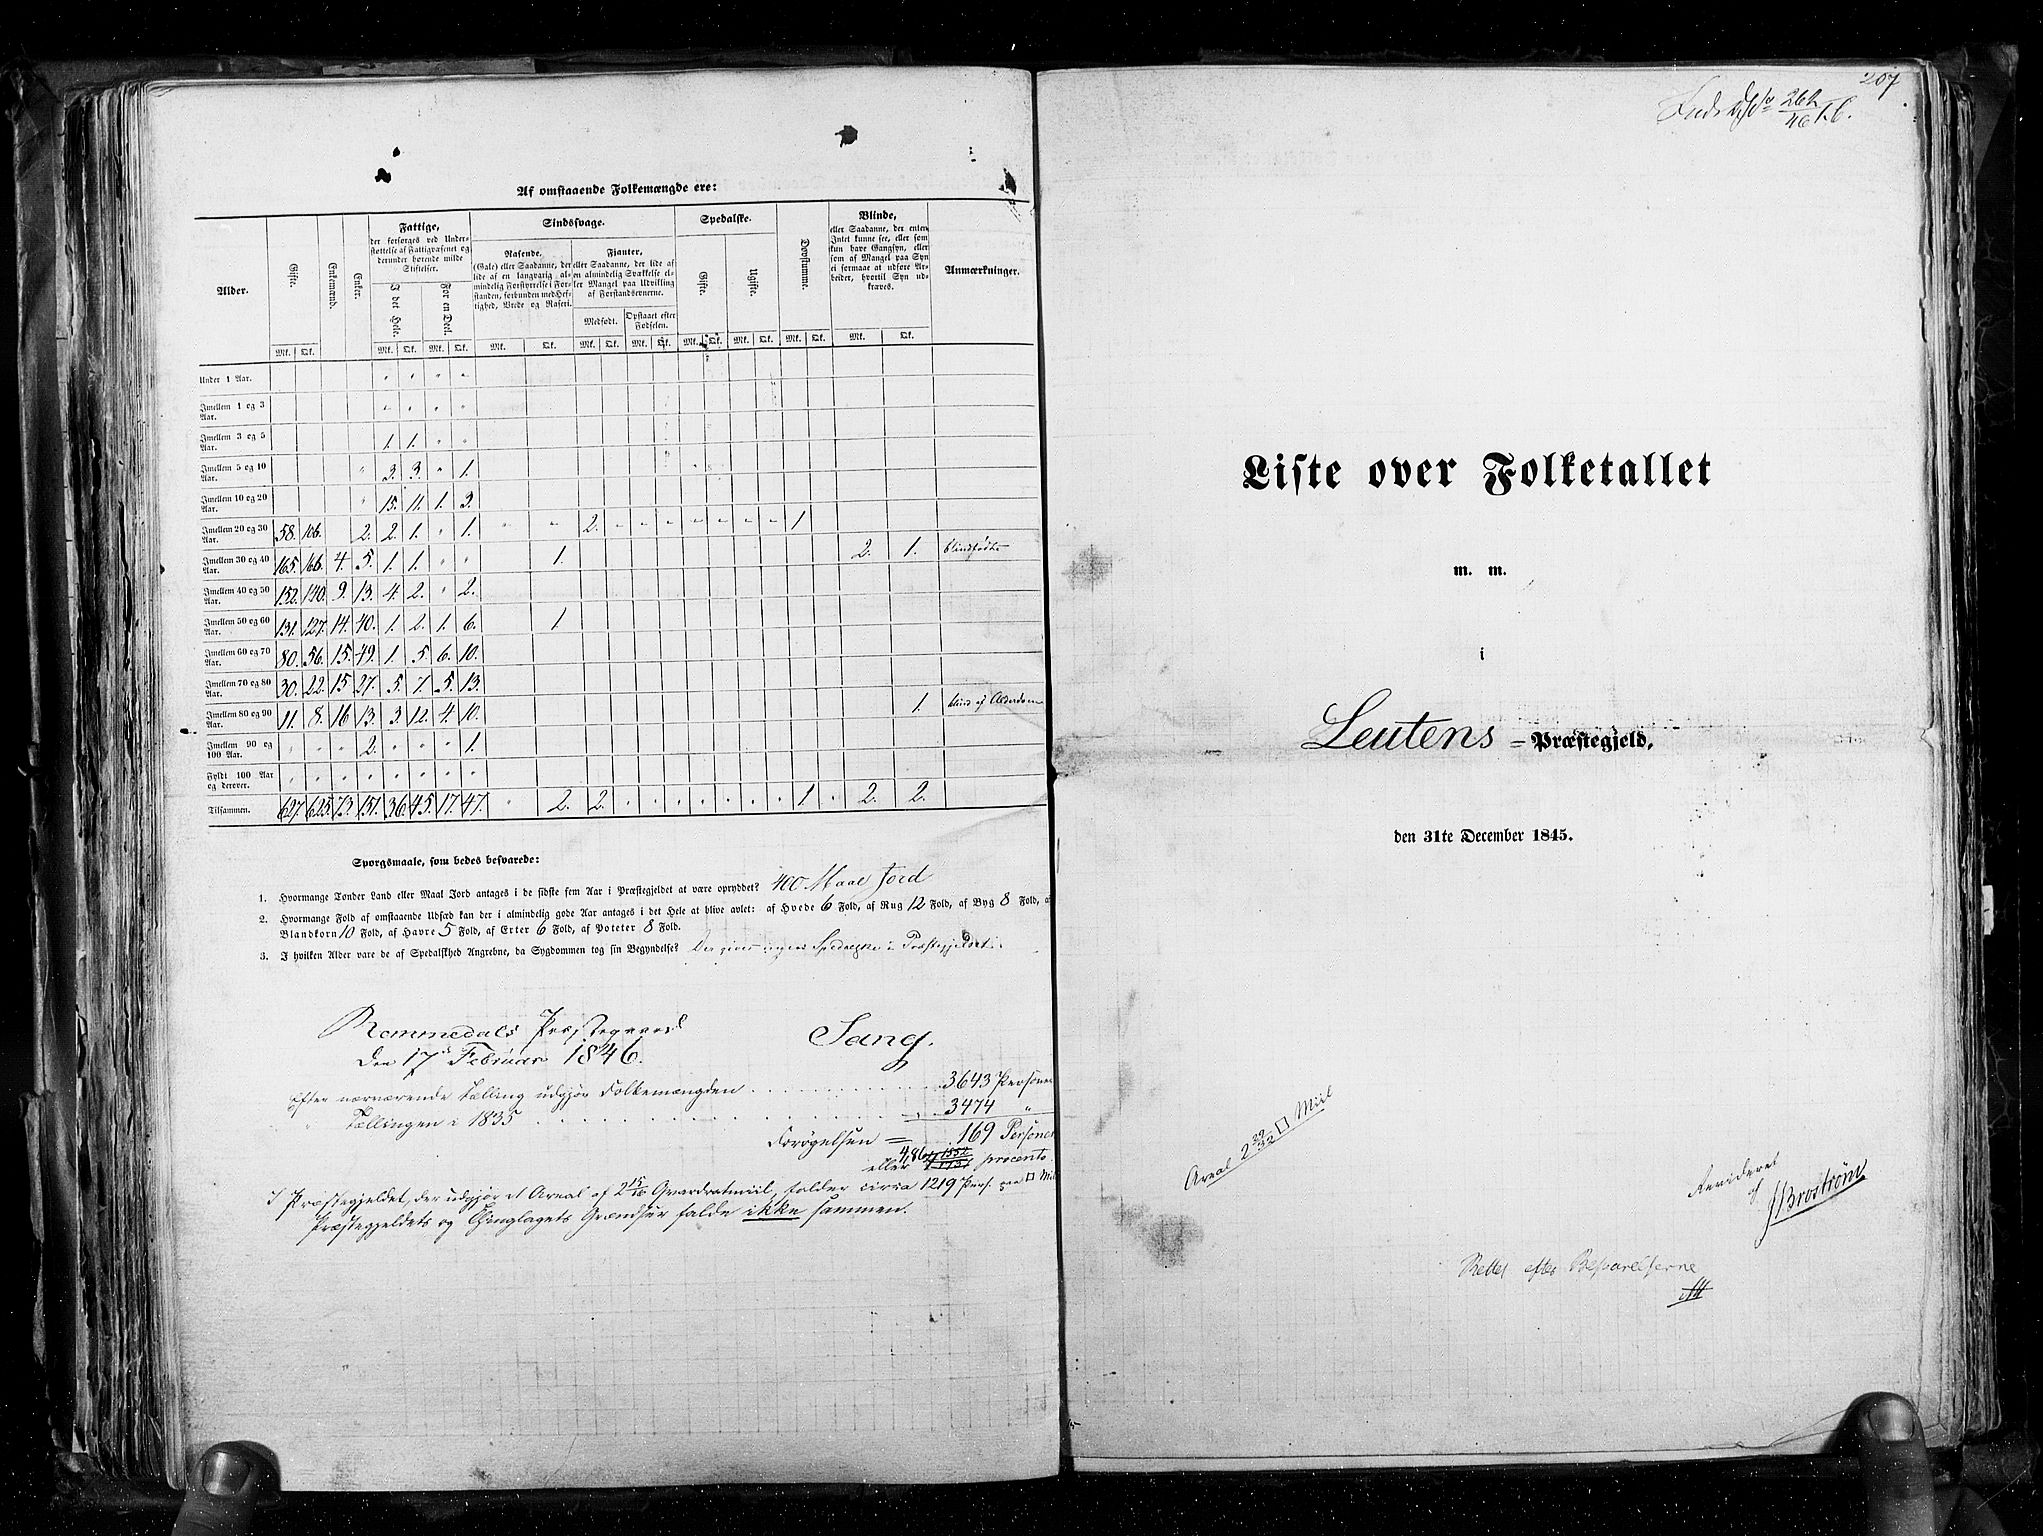 Af omstaaende Folkemængde ere:
Alder. | Gifte. | Enkemænd. | Enker. | Fattige, der forsørges ved Understøttelse af Fattigvæsenet og derunder hørende milde Stiftelser. | Sindssvage. | Spedalske. | Døvstumme. | Blinde, eller Saadanne, der enten Intet kunne see, eller som kun have Gangsyn, eller som af Mangel paa Syn ei formaae at udføre Arbeider, hvortil Syn udkræves. | Anmærkninger.
I det Hele. | For en Deel. | Rasende. (Gale) eller Saadanne, der lide af en langvarig almindelig Forstyrrelse i Forstanden, forbunden med Heftighed, Vrede og Raseri. | Fjanter, eller Saadanne, der lide af en almindelig Svækkelse eller Mangel paa Udvikling af Forstandsevnerne. | Gifte. | Ugifte.
Medfødt. | Opstaaet efter Fødselen.
Mk. | Qk. | Mk. | Qk. | Mk. | Qk. | Mk. | Qk. | Mk. | Qk. | Mk. | Qk. | Mk. | Qk. | Mk. | Qk. | Mk. | Qk. | Mk. | Qk.
Under 1 Aar. | " | " | " | "
Imellem 1 og 3 Aar. | " | " | " | "
Imellem 3 og 5 Aar. | 1. | 1. | " | "
Imellem 5 og 10 Aar. | " | 3. | 3. | " | 1.
Imellem 10 og 20 Aar. | " | 15. | 11. | 1. | 3.
Imellem 20 og 30 Aar. | 58. | 106. | 2. | 2. | 1. | " | 1. | " | " | 2. | " | " | " | " | " | " | " | 1
Imellem 30 og 40 Aar. | 165. | 166. | 4. | 5. | 1. | 1. | " | " | 1. | 2. | 1. | blindfødte
Imellem 40 og 50 Aar. | 152. | 140. | 9. | 13. | 4. | 2. | " | 2.
Imellem 50 og 60 Aar. | 131. | 127. | 14. | 40. | 1. | 2. | 1. | 6. | 1
Imellem 60 og 70 Aar. | 80. | 56. | 15. | 49. | 1. | 5. | 6. | 10.
Imellem 70 og 80 Aar. | 30. | 22. | 15 | 27. | 5. | 7. | 5. | 13.
Imellem 80 og 90 Aar. | 11. | 8. | 16 | 13. | 3. | 12. | 4. | 10. | 1. | blind af Alderdom
Imellem 90 og 100 Aar. | " | " | " | 2. | " | " | " | 1.
Fyldt 100 Aar og derover. | " | " | " | " | " | " | " | "
Tilsammen. | 627. | 625. | 73. | 151. | 36. | 45. | 17. | 47. | " | 2. | 2. | " | " | " | " | " | " | " | 1 | " | 2. | 2.
Spørgsmaale, som bedes besvarede:
1. Hvormange Tønder Land eller Maal Jord antages i de sidste fem Aar i Præstegjeldet at være opryddet? 400 Maal Jord
2. Hvormange Fold af omstaaende Udsæd kan der i almindelig gode Aar antages i det Hele at blive avlet: af Hvede 6 Fold, af Rug 12 Fold, af Byg 8 Fold, af
Blandkorn 10 Fold, af Havre 5 Fold, af Erter 6 Fold, af Poteter 8 Fold.
3. I hvilken Alder vare de af Spedalskhed Angrebne, da Sygdommen tog sin Begyndelse? Der gives ingen Spedalske i Præstegjeldet.
Rommedals Præstegaard
Den 17de Februar 1846.
Sang.
Efter nærværende Tælling udgjør Folkemængden . . . 3643 Personer
" Tællingen i 1835 . . . 3474 "
Forøgelsen = 169 Personer
eller 4,86 procento.
I Præstegjeldet, der udgjør et Areal af 2 15/16 Qvardratmiil, falder circa 1219 Pers. paa □ Miil
Præstegjeldets og Thinglagets Grændser falde ikke sammen.
207
262/46 1.6.
Liste over Folketallet
m. m.
i
Leutens = Præstegjeld,
den 31te December 1845.
Areal 2 29/32 □ Miil
Revideret
af
J Broström
Rettet efter Besvarelserne